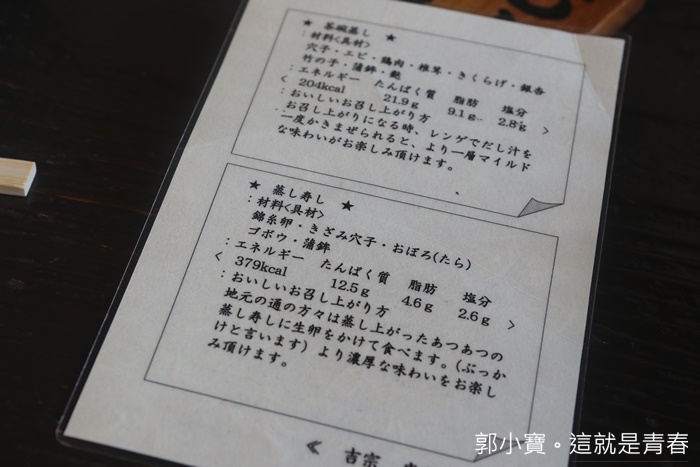 ★ 茶碗蒸し ★
：材料<具材>
穴子・エビ・鶏肉・椎茸・きくらげ・銀杏
竹の子・蒲鉾・麩
：エネルギー たんぱく質 脂肪 塩分
< 204kcal 21.9g 9.1g 2.8g >
：おいしいお召し上がり方
お召し上がりになる時、レンゲでだし汁を
一度かきまぜられると、より一層マイルド
な味わいがお楽しみ頂けます。
★ 蒸し寿し ★
：材料<具材>
錦糸卵・きざみ穴子・おぼろ(たら)
ゴボウ・蒲鉾
：エネルギー たんぱく質 脂肪 塩分
< 379kcal 12.5g 4.6g 2.6g >
：おいしいお召し上がり方
地元の通の方々は蒸し上がったあつあつの
蒸し寿しに生卵をかけて食べます。(ぶっか
けと言います) より濃厚な味わいをお楽し
み頂けます。
≪ 吉宗
郭小寶。這就是青春